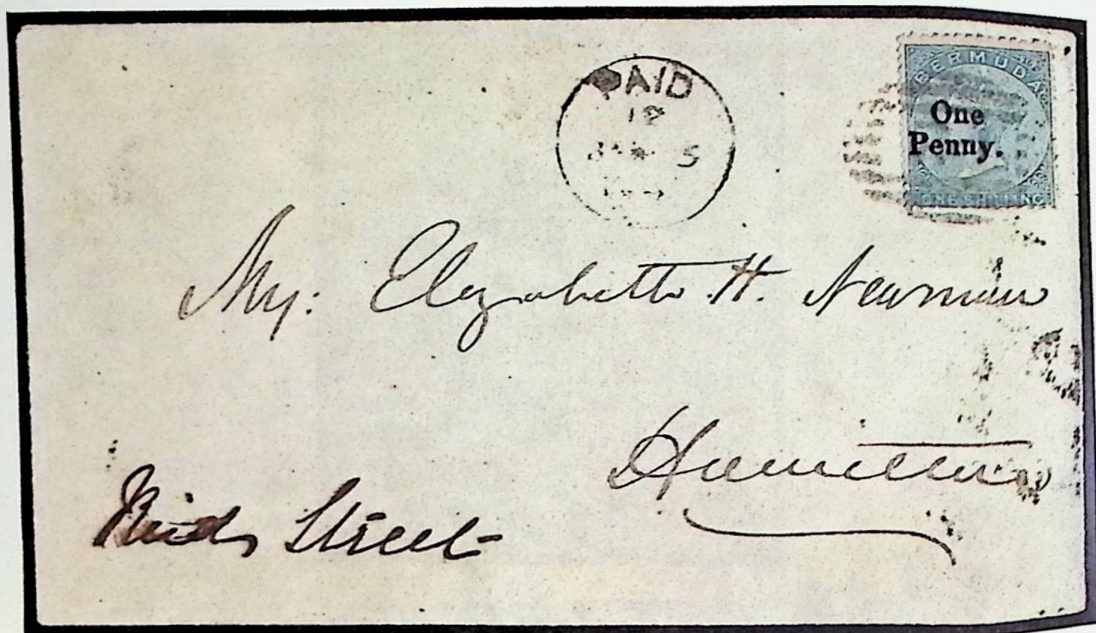 PAID
12
5
BERMUDA
One
Penny.
ONE SHILLING
Elizabeth H. Newman
Hamilton
Street